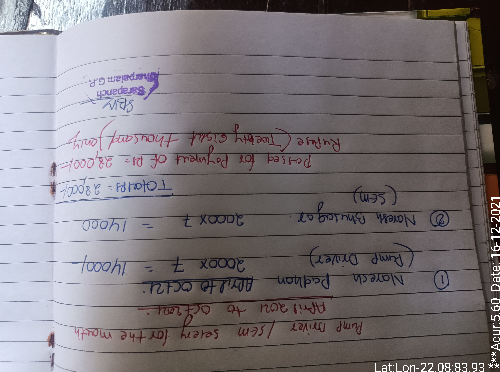 Pump Driver / SEM selery for the month
April 2021 to Oct 2021
① Naresh Padhan April to Oct 21
(Pump Driver) 2000 x 7 = 14000/-
② Naresh Bhusagar 2000 x 7 = 14000
(SEM)
Total Rs = 28,000/-
Passed for Payment of Rs = 28,000/-
Rupise (Twenty Eight thousand) only
Sarapanch
Lat:Lon-22.09,83.93
***Acur:5.60 Date: 16-12-2021